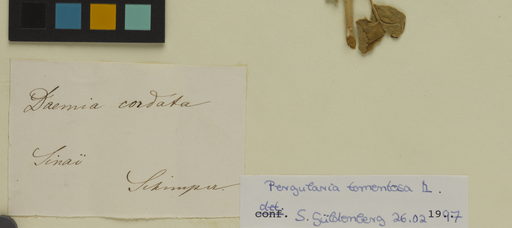 Daemia cordata
Sinaï
Schimper
Pergularia tomentosa L.
det.
conf. S. Güldenberg 26.02 1997